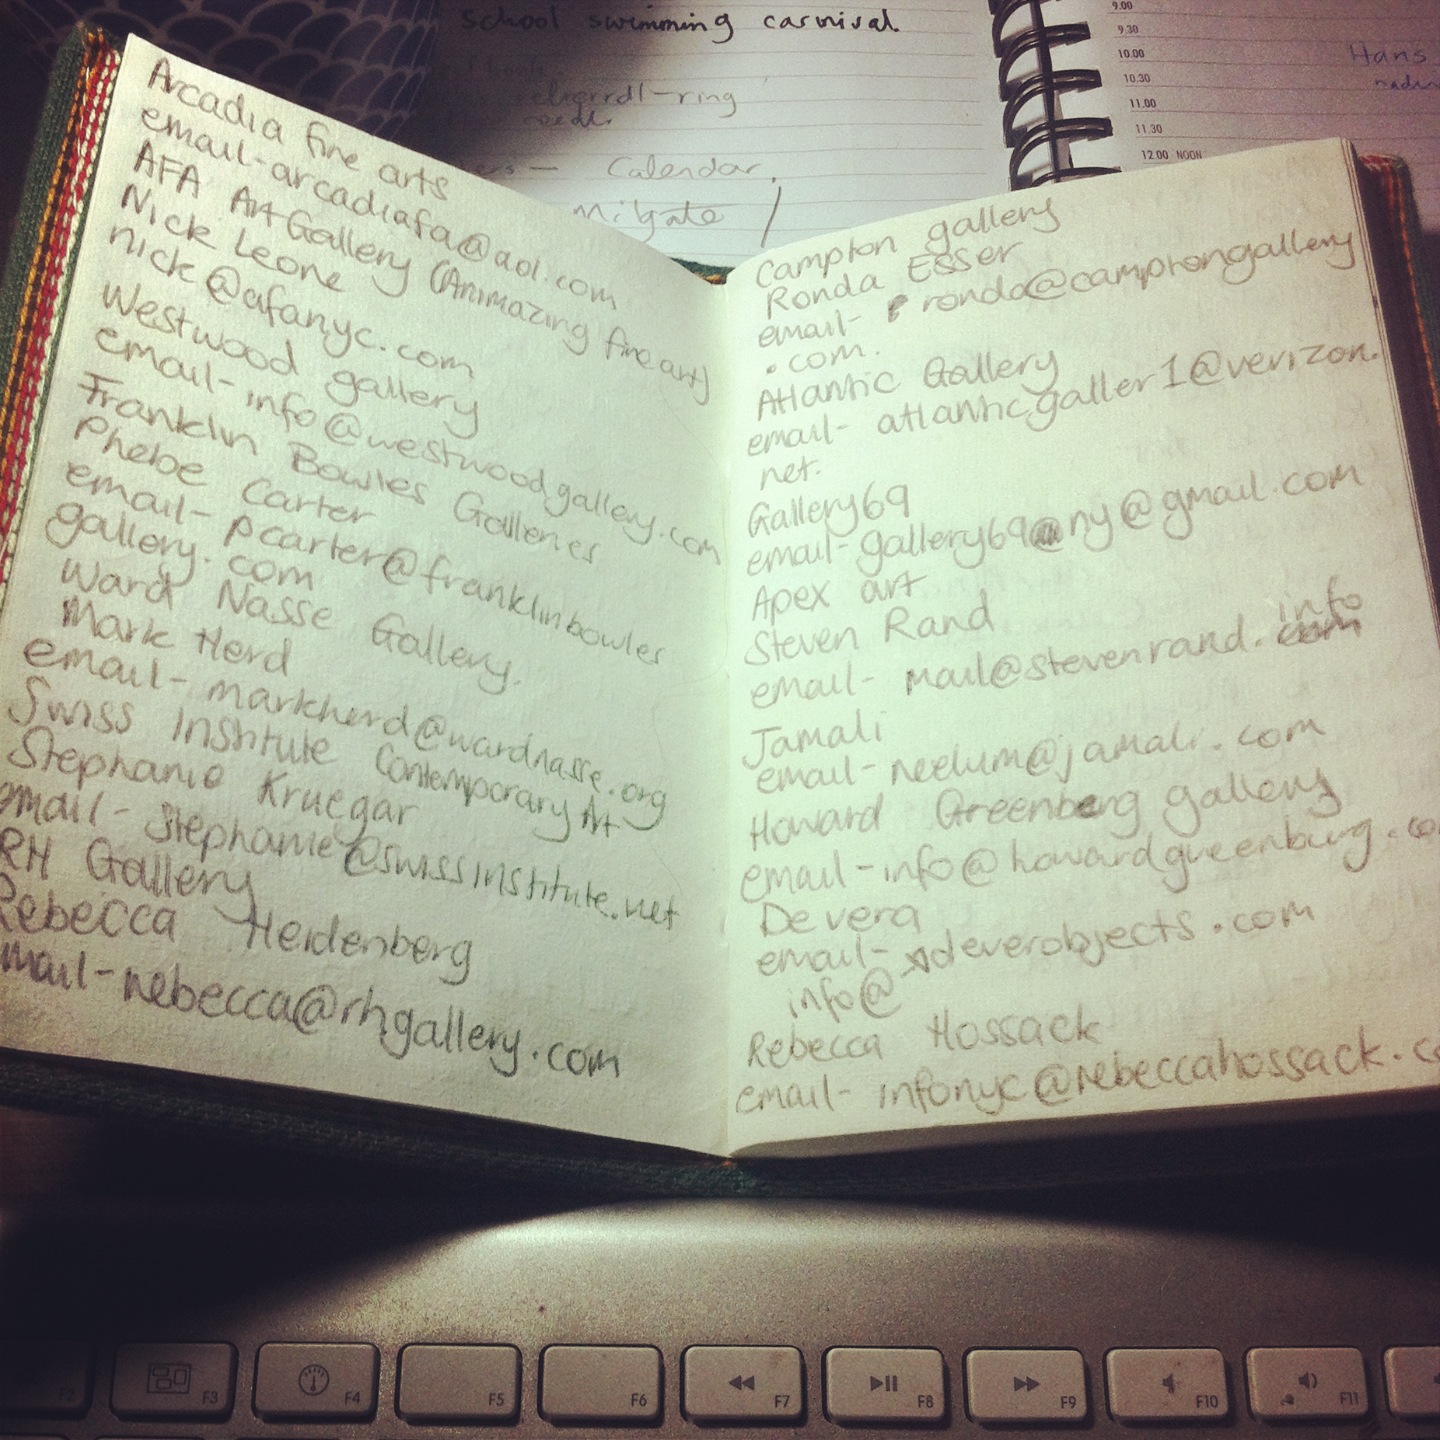 school swimming carnival.
ring
Calendar.
9.00
9.30
10.00
10.30
11.00
11.30
12.00 NOON
Hans
Arcadia fine arts
email-arcadiafa@aol.com
AFA Art Gallery (Animazing fine art)
Nick Leone
nick@afanyc.com
Westwood gallery
email-info@westwoodgallery.com
Franklin Bowles Galleries
Phebe Carter
email- pcarter@franklinbowles
gallery.com
Ward Nasse Gallery.
Mark Herd
email- markherd@wardnasse.org
Swiss Institute Contemporary Art
Stephanie Kruegar
email- stephanie@swissinstitute.net
RH Gallery
Rebecca Heidenberg
mail-rebecca@rhgallery.com
Campton gallery
Ronda Esser
email- ronda@camptongallery
.com.
Atlantic Gallery
email- atlanticgaller1@verizon.
net.
Gallery69
email-gallery69ny@gmail.com
Apex art
Steven Rand
email- mail@stevenrand.info
Jamali
email-neelum@jamali.com
Howard Greenberg gallery
email-info@howardgreenburg.co
De vera
email- deverobjects.com
info@
Rebecca Hossack
email- infonyc@rebeccahossack.co
F2
F3
F4
F5
F6
F7
F8
F9
F10
F11